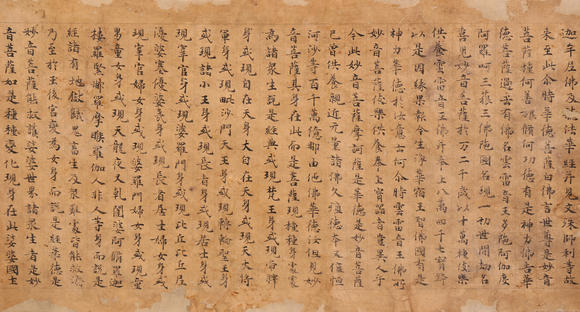 迦牟尼佛及聽法華經并見文殊師利等故
來至此尒時華德菩薩白佛言世尊是妙音
菩薩種何善根修何功德有是神力佛告華
德菩薩過去有佛名雲雷音王多陀阿伽度
阿羅訶三藐三佛陀國名現一切世間劫名
喜見妙音菩薩於万二千歲以十万種伎樂
供養雲雷音王佛并奉上八万四千七寶鉢
以是因緣果報今生淨華宿王智佛國有是
神力華德於汝意云何尒時雲雷音王佛所
妙音菩薩伎樂供養奉上寶器者豈異人乎
今此妙音菩薩摩訶薩是華德是妙音菩薩
已曾供養親近无量諸佛久殖德本又值恒
河沙等百千万億那由他佛華德汝但見妙
音菩薩其身在此而是菩薩現種種身處處
為諸眾生說是經典或現梵王身或現帝釋
身或現自在天身或現大自在天身或現天大將
軍身或現毗沙門天王身或現轉輪聖王身
或現諸小王身或現長者身或現居士身或
現宰官身或現婆羅門身或現比丘比丘尼
優婆塞優婆夷身或現長者居士婦女身或
現宰官婦女身或現婆羅門婦女身或現童
男童女身或現天龍夜叉乹闥婆阿脩羅迦
樓羅緊那羅摩睺羅伽人非人等身而說是
經諸有地獄餓鬼畜生及眾難處皆能救濟
乃至於王後宮變為女身而說是經華德是
妙音菩薩能救護娑婆世界諸眾生者是妙
音菩薩如是種種變化現身在此娑婆國土